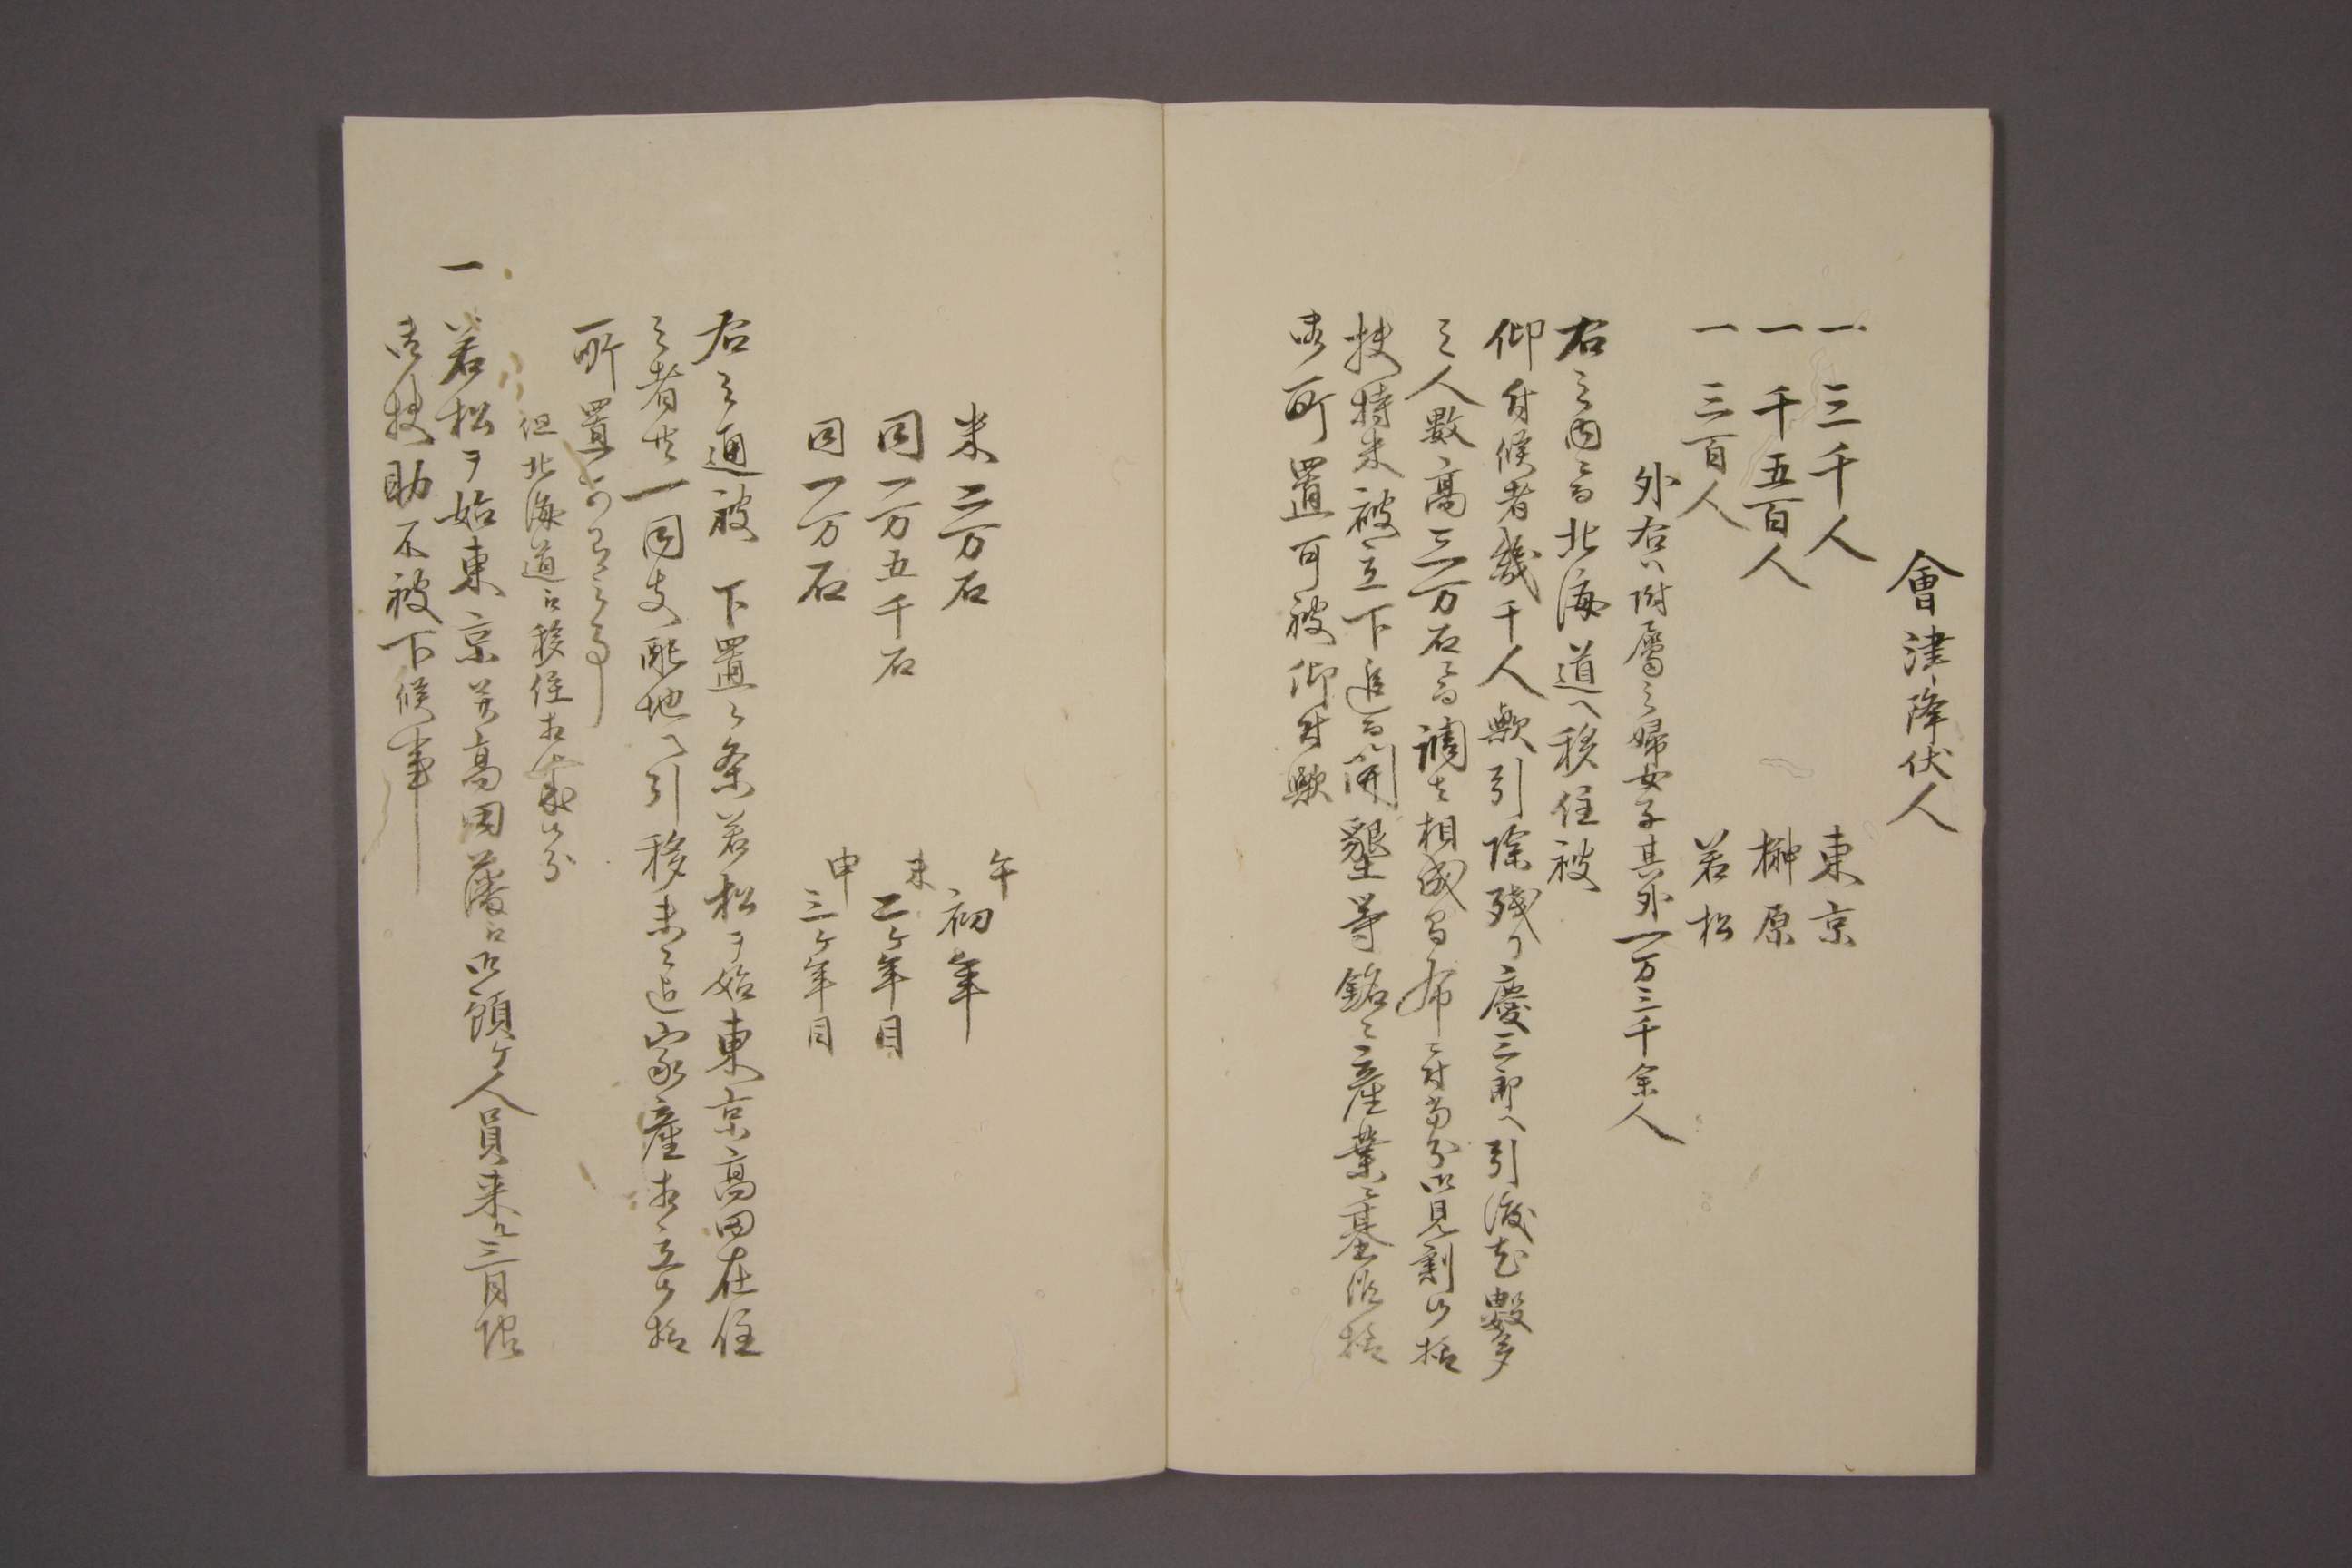 會津降伏人
一 三千人 東京
一 千五百人 榊原
一 三百人 若松
外右ハ附屬之婦女子其外一万三千余人
右之内ゟ北海道へ移住被
仰付候者幾千人歟引除残り慶三郎へ引渡
之人數高三万石ニ而調
扶持米被立下追而開墾等銘々産業之基
所置可被仰付歟
米二万石 午初年
同一万五千石 未二ケ年目
同一万石 申三ケ年目
右之通被下置候条若松ヲ始東京高田在住
之者共一同支配地へ引移未々迄家産相立候様
所置可有之事
但北海道江移住相成候分
一 若松ヲ始東京并高田藩江御預ケ人員来ル三月限
御扶助不被下候事